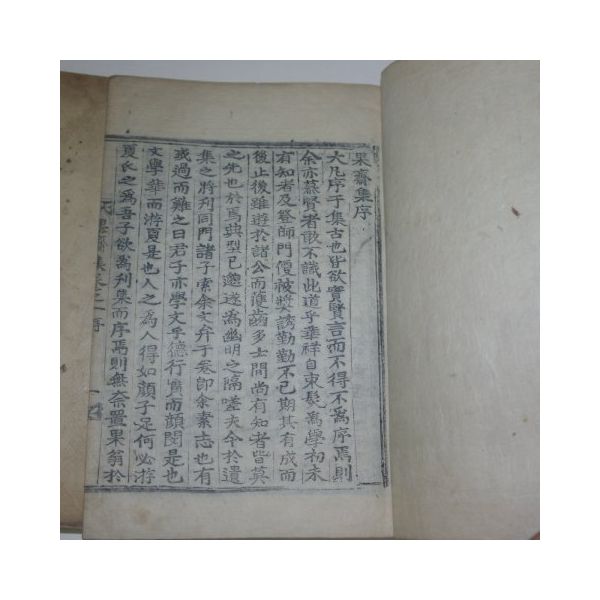 果齋集序
大凡序于集古也皆欲實賢言而不得不爲序焉則
余亦慕賢者敢不識此道乎華祥自束髮爲學初未
有知者及登師門偃被奬誘勤勤不已期其有成而
後止後雖遊於諸公而薩齒多士間尚有知者皆莫
之先也於焉典型已邈遂爲幽明之隔嗟夫今於遺
集之將刊同門諸子索余文弁于卷卽余素志也有
或過而難之曰君子亦學文乎德行實而顔閔是也
文學華而游夏是也人之爲人得如顔子足何必游
夏氏之爲吾子欲爲刋集而序焉則無奈置果翁於
果齋集卷之一 序 一